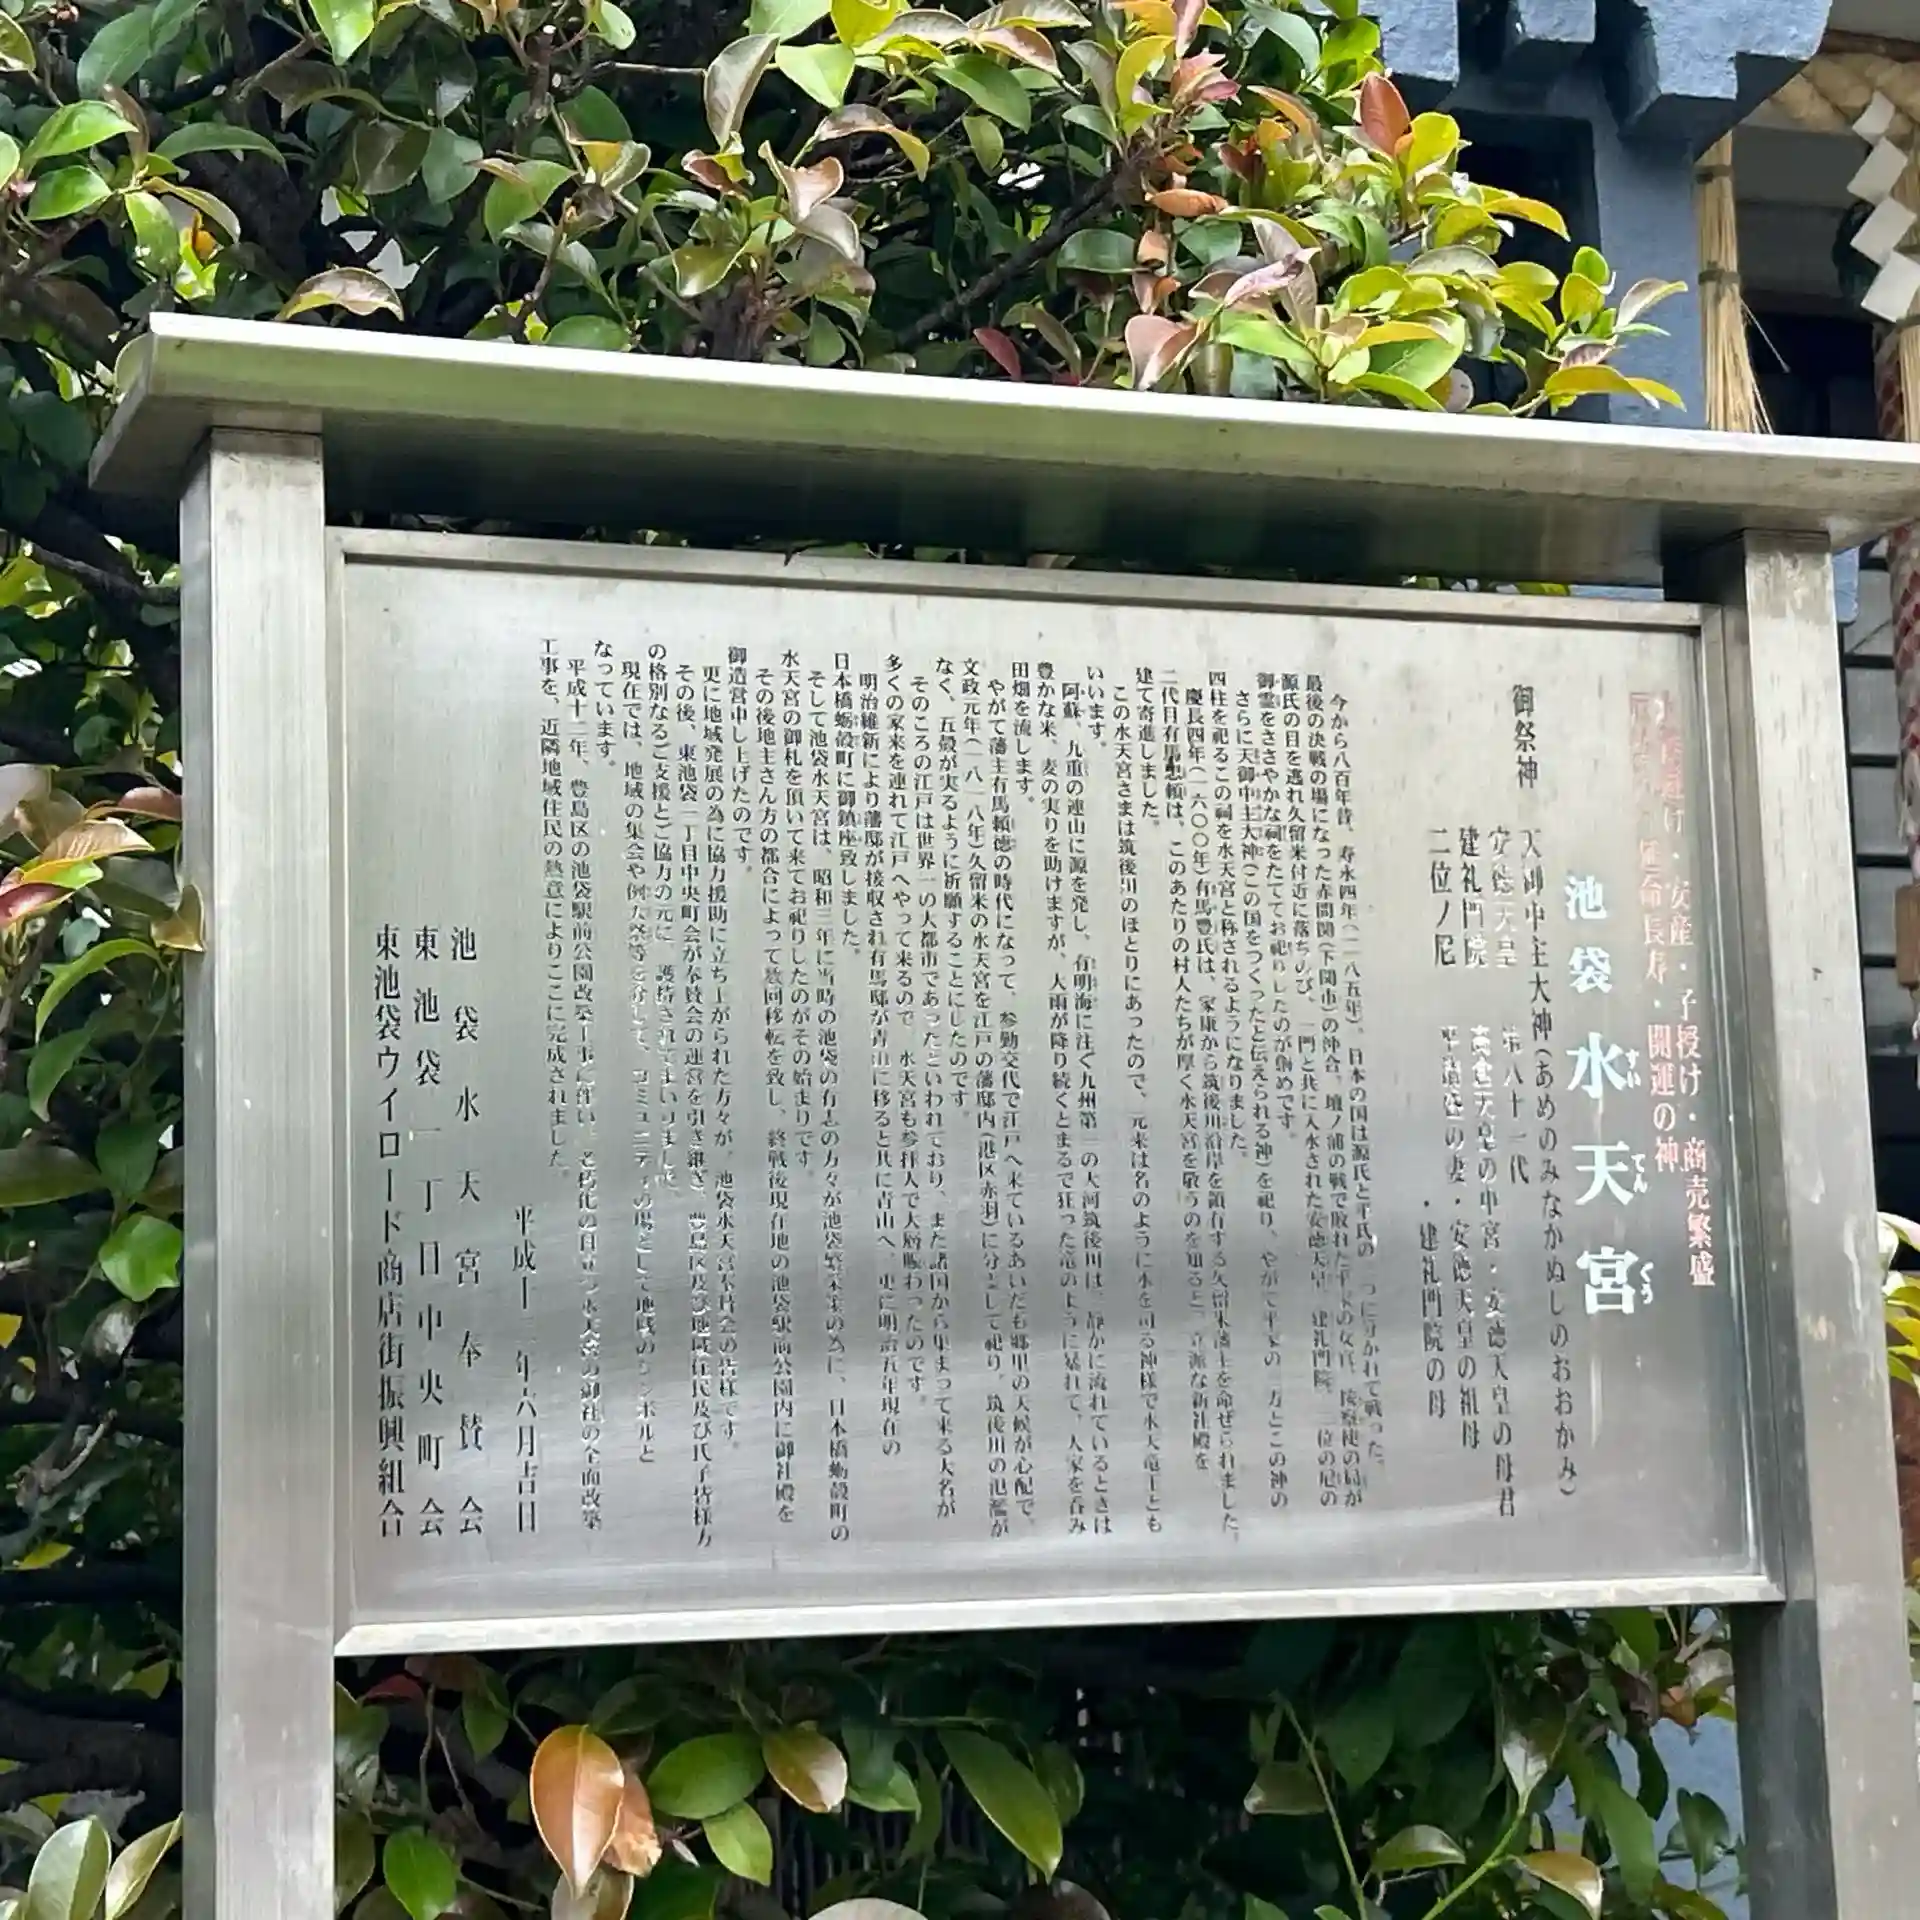 ・安産・子授け・商売繁盛
延命長寿・開運の神
池袋水天宮
すい てん ぐう
御祭神
天御中主大神(あめのみなかぬしのおおかみ)
安徳天皇 第八十一代
建礼門院 高倉天皇の中宮・安徳天皇の母君
二位ノ尼 平清盛の妻・安徳天皇の祖母
・建礼門院の母
今から八百年昔、寿永四年(一一八五年)、日本の国は源氏と平氏の二つに分かれて戦った。
最後の決戦の場になった赤間関(下関市)の沖合、壇ノ浦の戦で敗れた平家の女官、按察使の局が
源氏の目を逃れ久留米付近に落ちのび、一門と共に入水された安徳天皇、建礼門院、二位の尼の
御霊をささやかな祠をたててお祀りしたのが始めです。
さらに天御中主大神(この国をつくったと伝えられる神)を祀り、やがて平家の一方とこの神の
四柱を祀るこの祠を水天宮と称されるようになりました。
慶長四年(一六〇〇年)有馬豊氏は、家康から筑後川沿岸を領有する久留米藩主を命ぜられました。
二代目有馬忠頼は、このあたりの村人たちが厚く水天宮を敬うのを知ると、立派な新社殿を
建て寄進しました。
この水天宮さまは筑後川のほとりにあったので、元来は名のように水を司る神様で水天竜王とも
いいます。
阿蘇、九重の連山に源を発し、有明海に注ぐ九州第一の大河筑後川は、静かに流れているときは
豊かな米、麦の実りを助けますが、大雨が降り続くとまるで狂った竜のように暴れて、人家を呑み
田畑を流します。
やがて藩主有馬頼徳の時代になって、参勤交代で江戸へ来ているあいだも郷里の天候が心配で、
文政元年(一八一八年)久留米の水天宮を江戸の藩邸内(港区赤羽)に分社として祀り、筑後川の氾濫が
なく、五穀が実るように祈願することにしたのです。
そのころの江戸は世界一の大都市であったといわれており、また諸国から集まって来る大名が
多くの家来を連れて江戸へやって来るので、水天宮も参拝人で大層賑わったのです。
明治維新により藩邸が接収され有馬邸が青山に移ると共に青山へ、更に明治五年現在の
日本橋蛎殻町に御鎮座致しました。
そして池袋水天宮は、昭和三年に当時の池袋の有志の方々が池袋繁栄策の為に、日本橋蛎殻町の
水天宮の御札を頂いて来てお祀りしたのがその始まりです。
その後地主さん方の都合によって数回移転を致し、終戦後現在地の池袋駅前公園内に御社殿を
御造営申し上げたのです。
更に地域発展の為に協力援助に立ち上がられた方々が、池袋水天宮奉賛会の皆様です。
その後、東池袋一丁目中央町会が奉賛会の運営を引き継ぎ、豊島区及び地域住民及び氏子皆様方
の格別なるご支援とご協力の元に、護持されてまいりました。
現在では、地域の集会や例大祭等を介して、コミュニティの場として地域のシンボルと
なっています。
平成十二年、豊島区の池袋駅前公園改築工事に伴い、老朽化の目立つ水天宮の御社の全面改築
工事を、近隣地域住民の熱意によりここに完成されました。
平成十三年六月吉日
池袋水天宮奉賛会
東池袋一丁目中央町会
東池袋ウイロード商店街振興組合